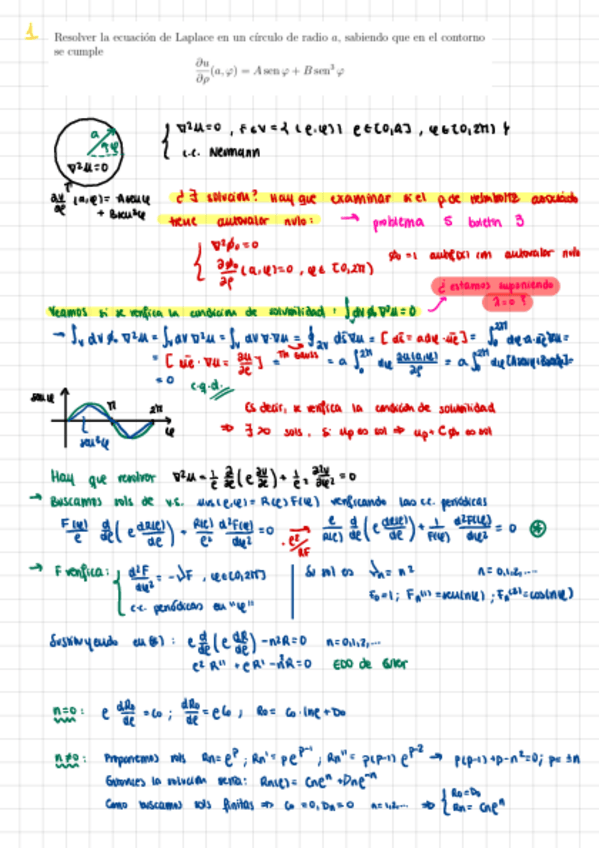 1 Resolver la ecuación de Laplace en un círculo de radio a, sabiendo que en el contorno
se cumple
∂u/∂ρ (a,φ) = A sen φ + B sen³ φ
a
φ
∇²u=0
∂u/∂ρ (a,φ) = A sen φ + B sen³φ
{ ∇²u=0 , r∈V={(ρ,φ) | ρ∈[0,a] , φ∈[0,2π)}
c.c. Neumann
¿∃ solución? Hay que examinar si el p. de Helmholtz asociado
tiene autovalor nulo: → problema 5 boletín 3
{ ∇²ϕ₀=0
∂ϕ₀/∂ρ (a,φ)=0 , φ∈[0,2π)
ϕ₀=1 autof(x) con autovalor nulo
¿estamos suponiendo
λ=0?
Veamos si se verifica la condición de solubilidad: ∫dv ϕ₀ ∇²u=0
→ ∫ᵥ dv ϕ₀ ∇²u = ∫ᵥ dv ∇²u = ∫ᵥ dv ∇·∇u = ∮ ds̄ ∇u = [ds̄ = a dφ·ūρ] = ∫₀^2π dφ·a·ūρ ∇u =
= [ūρ · ∇u = ∂u/∂ρ] = Th Gauss = a ∫₀^2π dφ ∂u(a,φ)/∂ρ = a ∫₀^2π dφ [A sen φ + B sen³φ] =
= 0 c.q.d.
sen φ
π
2π
φ
sen³φ
Es decir, se verifica la condición de solubilidad
⇒ ∃ ∞ sols, si up es sol ⇒ up + Cϕ₀ es sol
Hay que resolver ∇²u = 1/ρ ∂/∂ρ (ρ ∂u/∂ρ) + 1/ρ² ∂²u/∂φ² = 0
→ Buscamos sols de v.s. uvs(ρ,φ) = R(ρ) F(φ) verificando las c.c. periódicas
F(φ)/ρ d/dρ (ρ dR(ρ)/dρ) + R(ρ)/ρ² d²F(φ)/dφ² = 0 → ·ρ²/RF ρ/R(ρ) d/dρ (ρ dR(ρ)/dρ) + 1/F(φ) d²F(φ)/dφ² = 0 ⊛
→ F verifica: { d²F/dφ² = -λF , φ∈[0,2π)
c.c. periódicas en "φ"
Su sol es λn = n² n=0,1,2,...
F₀=1; Fn⁽¹⁾ = sen(nφ) ; Fn⁽²⁾ = cos(nφ)
Sustituyendo en (*) : ρ d/dρ (ρ dR/dρ) - n²R = 0 n=0,1,2,...
ρ² R'' + ρR' - n²R = 0 EDO de Euler
n=0: ρ dR₀/dρ = C₀ ; dR₀/dρ = C₀/ρ ; R₀ = C₀·lnρ + D₀
n≠0: Proponemos sols Rn = ρᵖ ; Rn' = pρᵖ⁻¹ ; Rn'' = p(p-1)ρᵖ⁻² → p(p-1)+p-n²=0; p=±n
Entonces la solución será: Rn(ρ) = Cnρⁿ + Dnρ⁻ⁿ
Como buscamos sols finitas ⇒ C₀=0, Dn=0 n=1,2,... ⇒ { R₀=D₀
Rn = Cnρⁿ